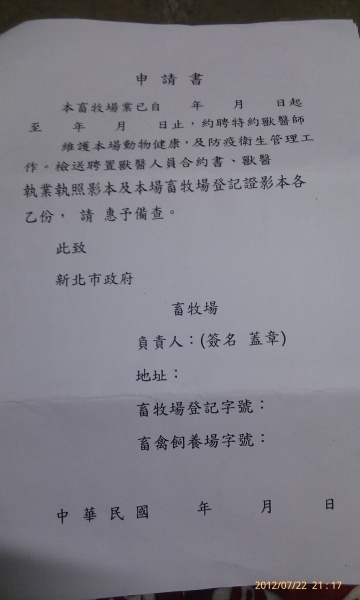 申請書
本畜牧場業已自 年 月 日起
至 年 月 日止，約聘特約獸醫師
維護本場動物健康，及防疫衛生管理工
作。檢送聘置獸醫人員合約書、獸醫
執業執照影本及本場畜牧場登記證影本各
乙份， 請 惠予備查。
此致
新北市政府
畜牧場
負責人：(簽名 蓋章)
地址：
畜牧場登記字號：
畜禽飼養場字號：
中華民國 年 月 日
2012/07/22 21:17